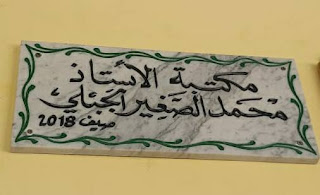 مكتبة الأستاذ
محمد الصغير الجبلي
صيف 2018